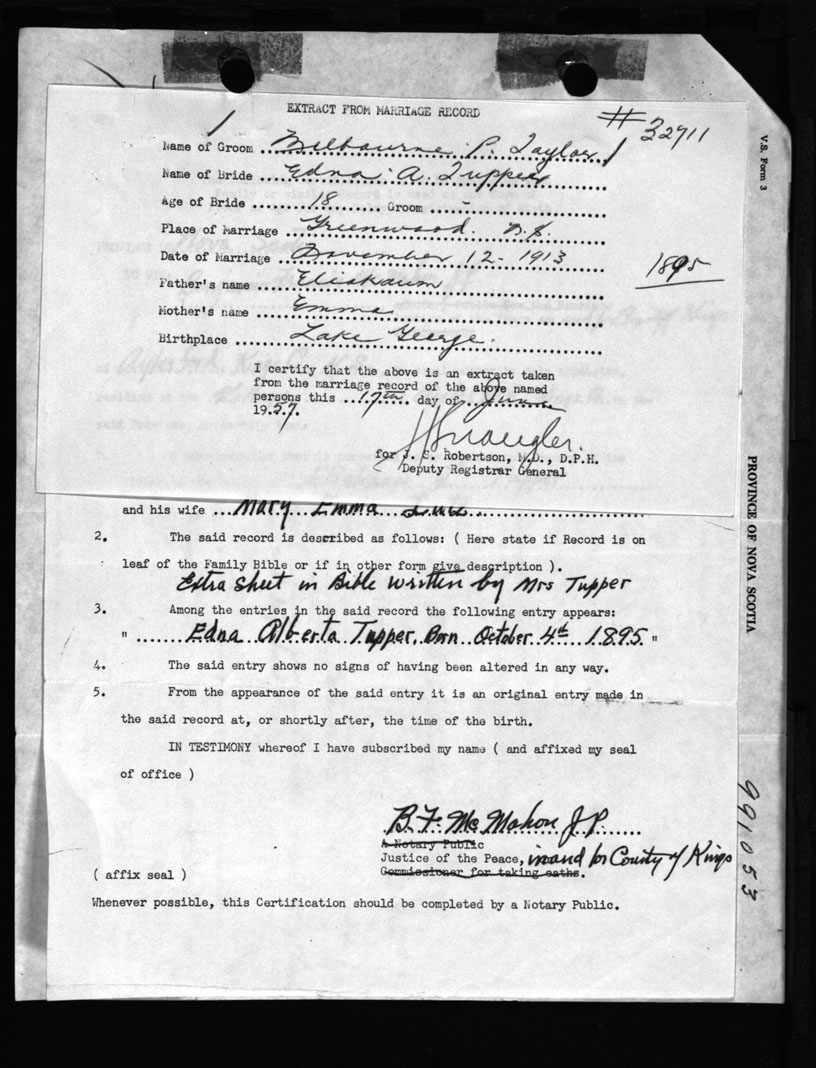 EXTRACT FROM MARRIAGE RECORD
# 32911
Name of Groom Milbourne P. Taylor
Name of Bride Edna A. Tupper
Age of Bride 18 Groom -
Place of Marriage Greenwood. N.S.
Date of Marriage November 12 - 1913
1895
Father's name
Mother's name Emma
Birthplace Lake George.
I certify that the above is an extract taken
from the marriage record of the above named
persons this 17th day of June
19.57.
for J. S. Robertson, M.D., D.P.H.
Deputy Registrar General
and his wife Mary Emma
2. The said record is described as follows: ( Here state if Record is on
leaf of the Family Bible or if in other form give description ).
Extra sheet in Bible written by Mrs Tupper
3. Among the entries in the said record the following entry appears:
" Edna Alberta Tupper. Born October 4th 1895 "
4. The said entry shows no signs of having been altered in any way.
5. From the appearance of the said entry it is an original entry made in
the said record at, or shortly after, the time of the birth.
IN TESTIMONY whereof I have subscribed my name ( and affixed my seal
of office )
B. F. Mc Mahon J P.
A Notary Public
Justice of the Peace, in and for County of Kings
Commissioner for taking oaths.
( affix seal )
Whenever possible, this Certification should be completed by a Notary Public.
V.S. Form 3
PROVINCE OF NOVA SCOTIA
991053